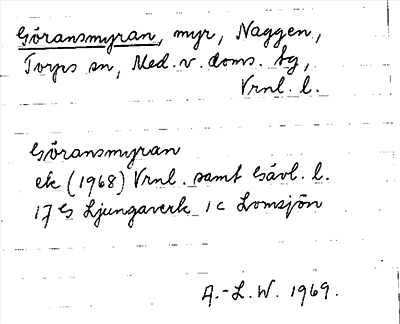 Göransmyran, myr, Naggen,
Torps sn, Med. v. doms. tg,
Vrnl. l.
Göransmyran
ek (1968) Vrnl. samt Gävl. l.
17 G Ljungaverk 1 c Lomsjön
A.-L. W. 1969.